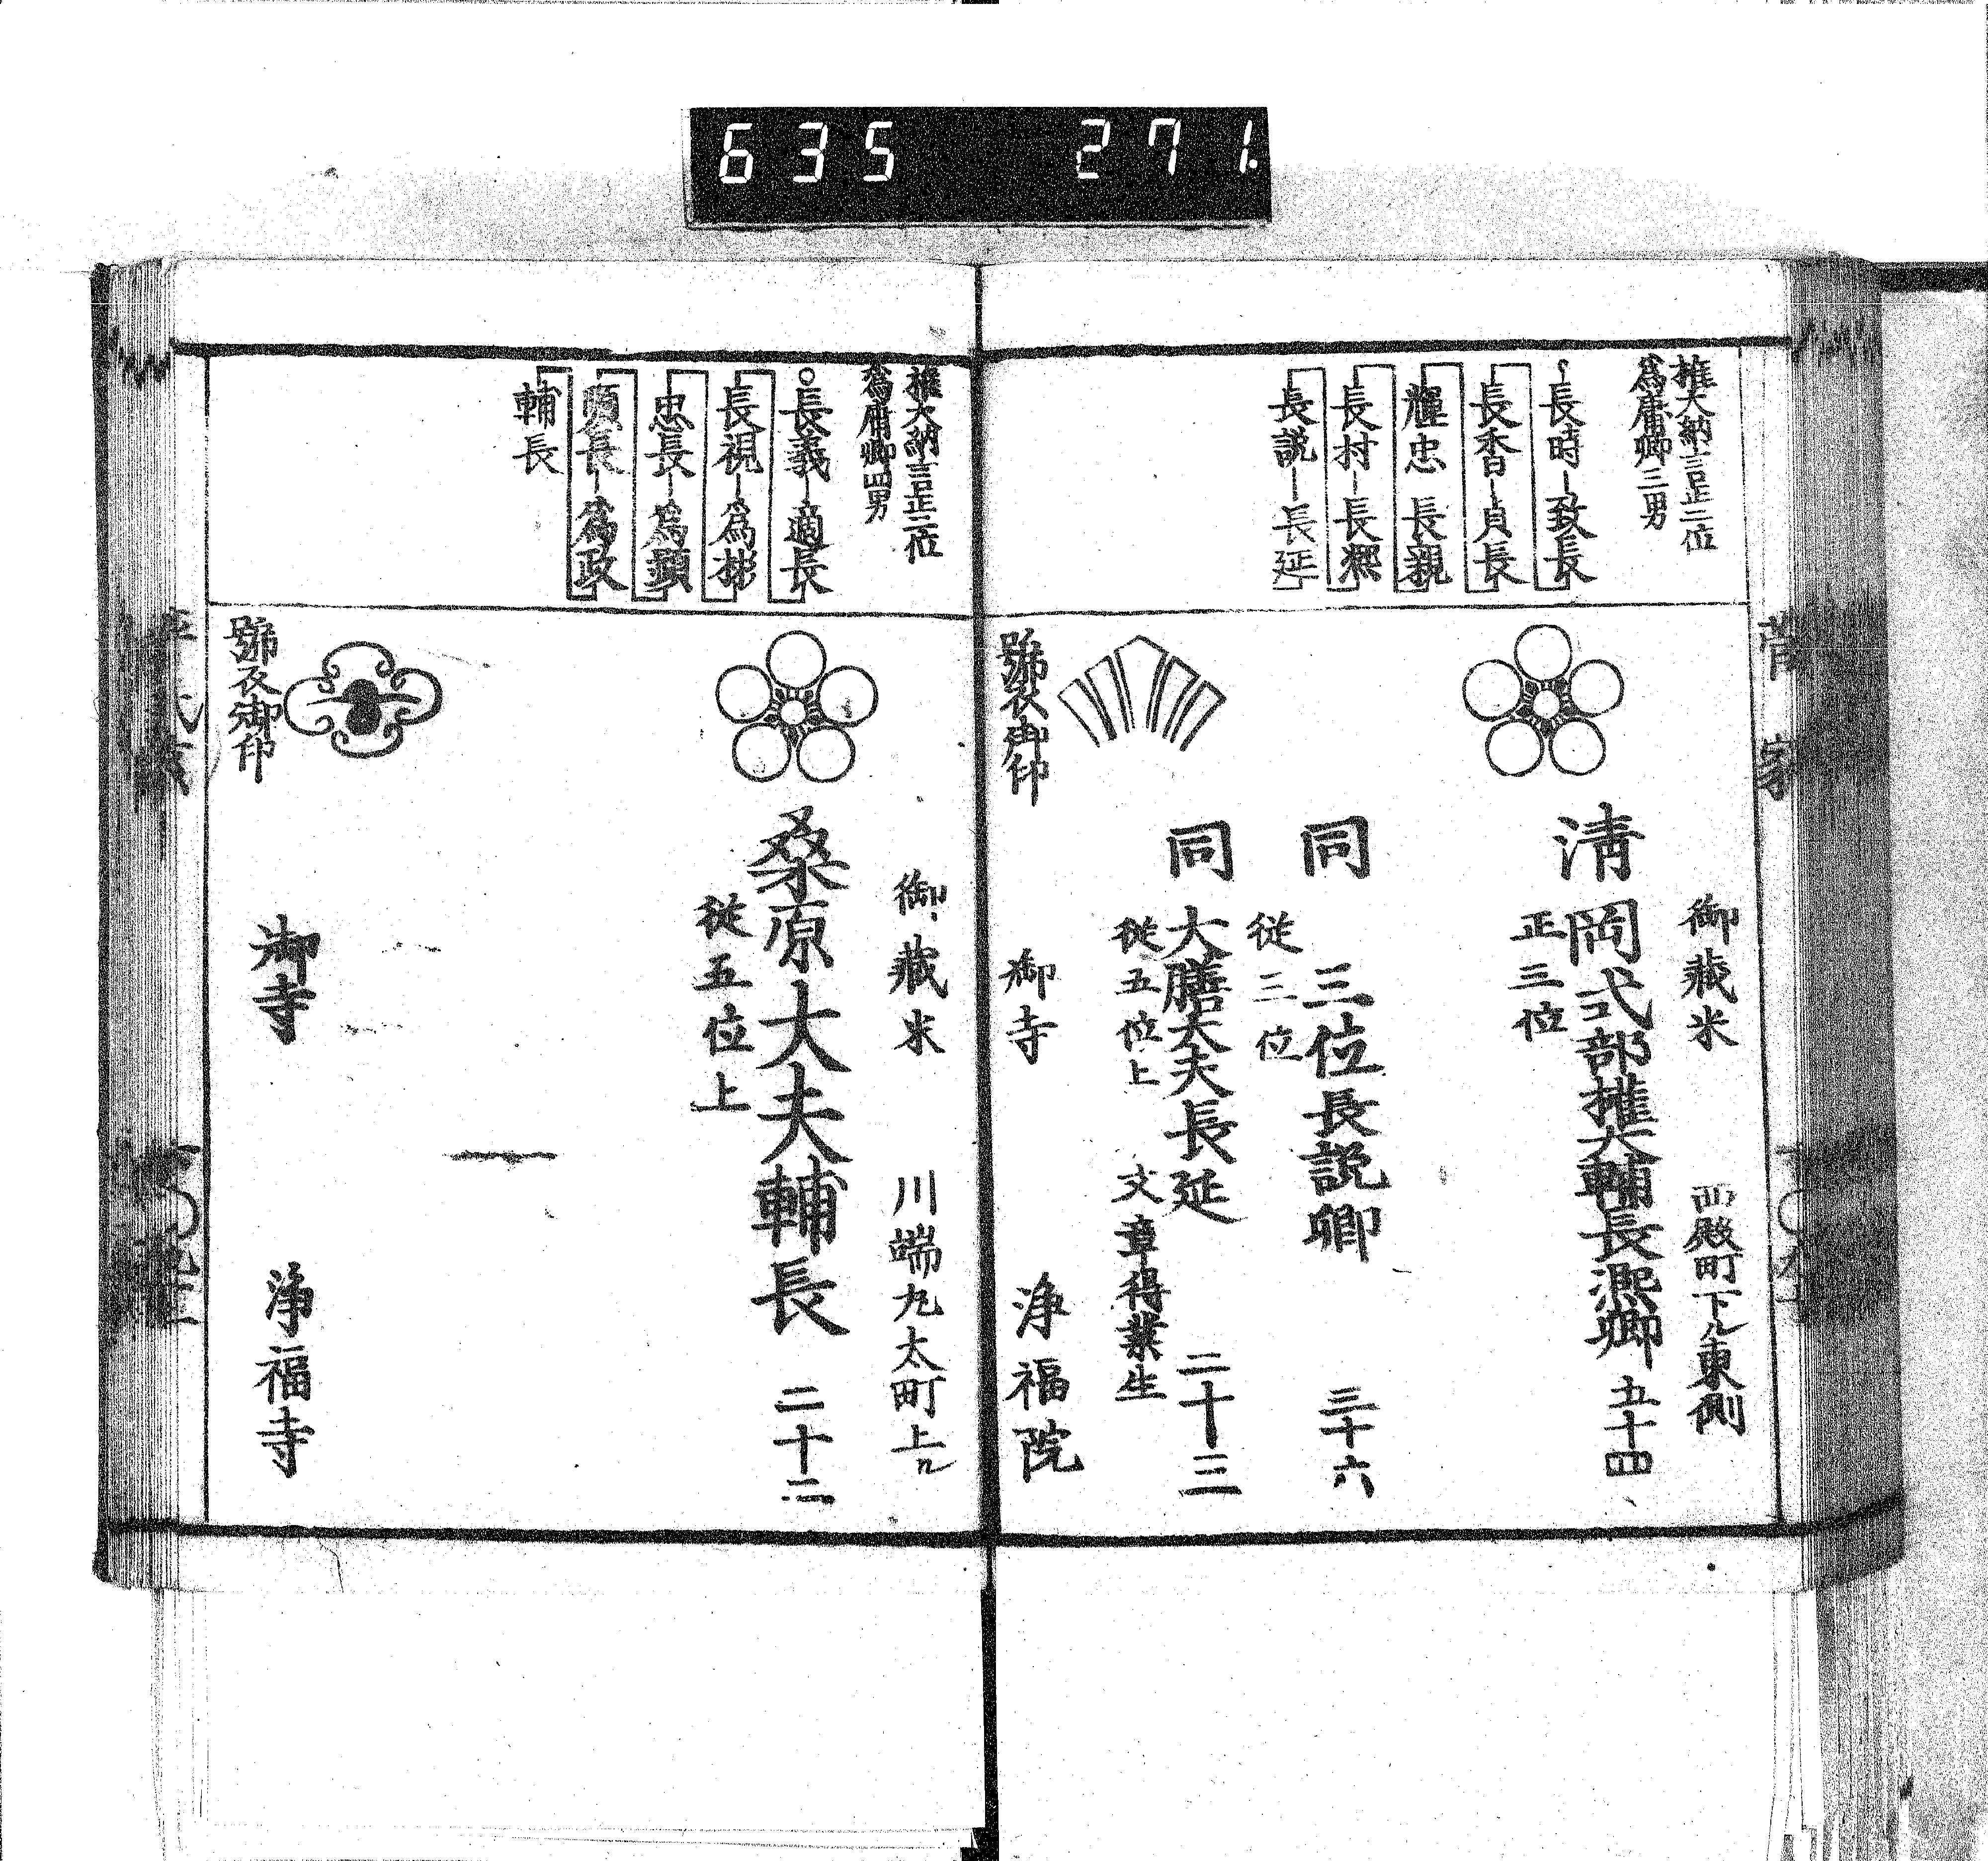 635 271.
權大納言正二位
爲庸卿三男
長時―致長
長香―貞長
輝忠 長親
長村―長凞
長説―長延
御藏米 西殿町下ル東側
清岡式部權大輔長凞卿 五十四
正三位
同 三位長説卿 三十六
從三位
同 大膳大夫長延 二十三
從五位上 文章得業生
號衣御印
御寺 浄福院
權大納言正二位
爲庸卿四男
長義―適長
長視―爲彬
忠長―爲顯
順長―爲政
輔長
御藏米 川端丸太町上ル
桑原大夫輔長 二十二
從五位上
號衣御印
御寺 浄福寺